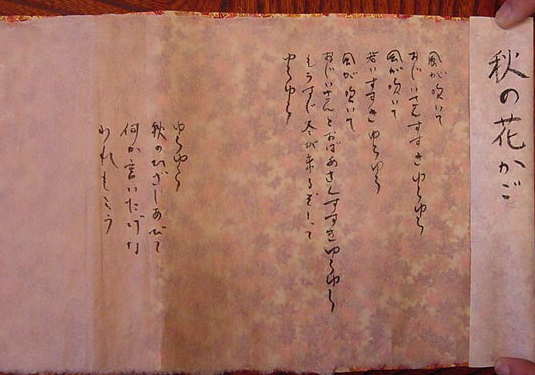 秋の花かご
風が吹いて
おじいさんすすき ゆらゆら
風が吹いて
若いすすき ゆらゆら
風が吹いて
おじいさんとおばあさんすすきゆらゆら
もうすぐ冬が来るぞして
ゆらゆら
ゆらゆら
秋のひざしあびて
何か言いたげな
われもこう